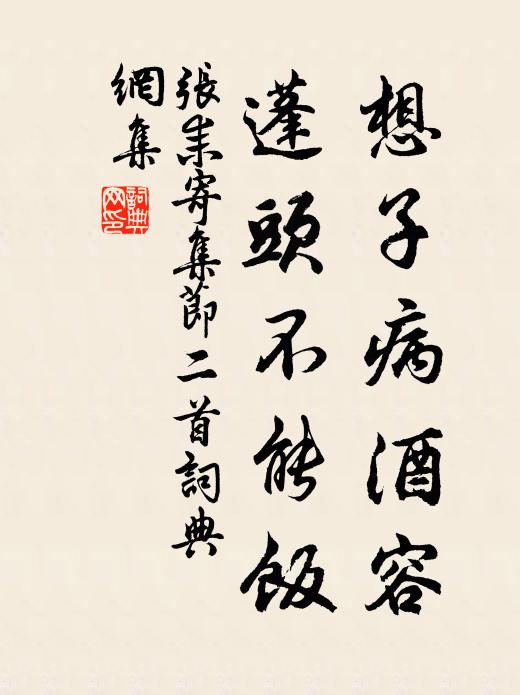 想子病酒容
蓬頭不能飯
張耒寄集節二首詞典
網集
詞典網印